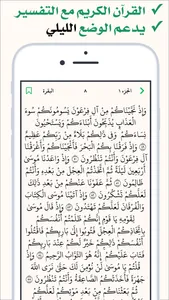 القرآن الكريم مع التفسير
يدعم الوضع الليلي
الجزء ١ ٨ البقرة
وَإِذْ نَجَّيْنَاكُم مِّنْ آلِ فِرْعَوْنَ يَسُومُونَكُمْ سُوءَ
الْعَذَابِ يُذَبِّحُونَ أَبْنَاءَكُمْ وَيَسْتَحْيُونَ
نِسَاءَكُمْ وَفِي ذَٰلِكُم بَلَاءٌ مِّن رَّبِّكُمْ عَظِيمٌ
۝ وَإِذْ فَرَقْنَا بِكُمُ الْبَحْرَ فَأَنجَيْنَاكُمْ وَأَغْرَقْنَا
آلَ فِرْعَوْنَ وَأَنتُمْ تَنظُرُونَ ۝ وَإِذْ وَاعَدْنَا مُوسَىٰ
أَرْبَعِينَ لَيْلَةً ثُمَّ اتَّخَذْتُمُ الْعِجْلَ مِن بَعْدِهِ وَأَنتُمْ
ظَالِمُونَ ۝ ثُمَّ عَفَوْنَا عَنكُم مِّن بَعْدِ ذَٰلِكَ لَعَلَّكُمْ
تَشْكُرُونَ ۝ وَإِذْ آتَيْنَا مُوسَى الْكِتَابَ
وَالْفُرْقَانَ لَعَلَّكُمْ تَهْتَدُونَ ۝ وَإِذْ قَالَ مُوسَىٰ
لِقَوْمِهِ يَا قَوْمِ إِنَّكُمْ ظَلَمْتُمْ أَنفُسَكُم
بِاتِّخَاذِكُمُ الْعِجْلَ فَتُوبُوا إِلَىٰ بَارِئِكُمْ
فَاقْتُلُوا أَنفُسَكُمْ ذَٰلِكُمْ خَيْرٌ لَّكُمْ عِندَ بَارِئِكُمْ
فَتَابَ عَلَيْكُمْ إِنَّهُ هُوَ التَّوَّابُ الرَّحِيمُ ۝ وَإِذْ
قُلْتُمْ يَا مُوسَىٰ لَن نُّؤْمِنَ لَكَ حَتَّىٰ نَرَى اللَّهَ
جَهْرَةً فَأَخَذَتْكُمُ الصَّاعِقَةُ وَأَنتُمْ تَنظُرُونَ